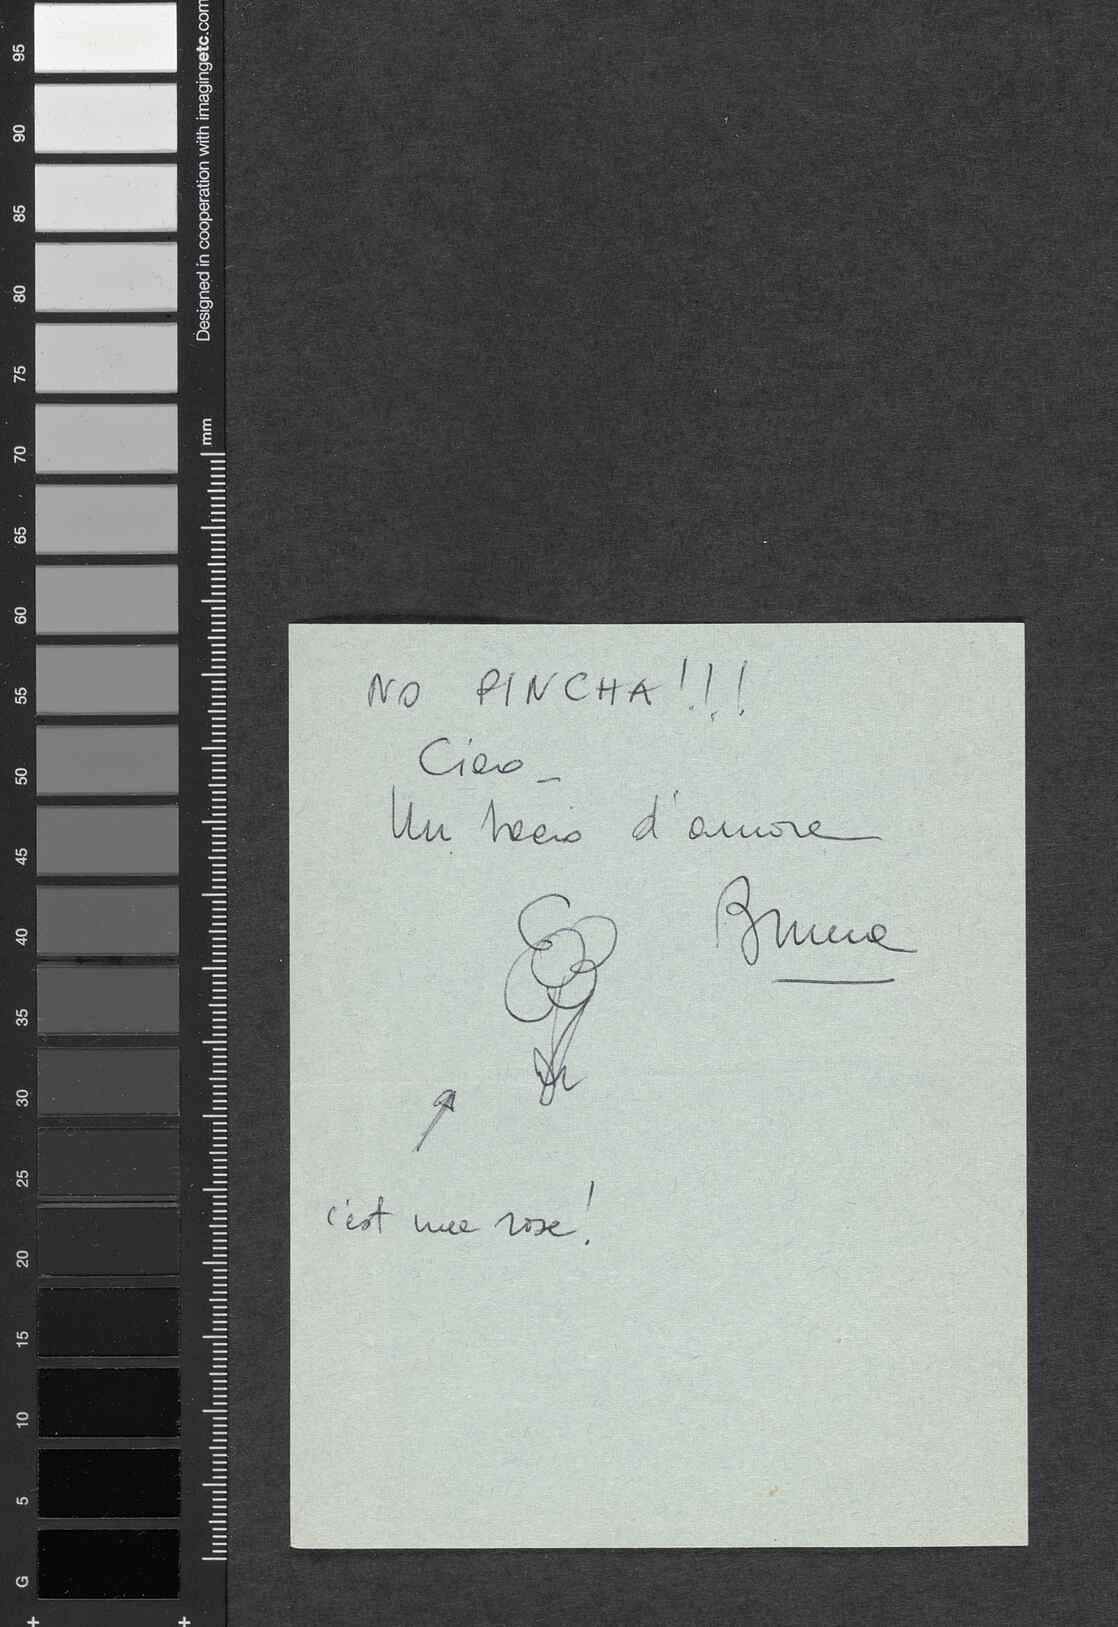 NO PINCHA!!!
Ciao_
Un bacio d'amore
Bruna
c'est une rose!
Designed in cooperation with imagingetc.com
mm
95
90
85
80
75
70
65
60
55
50
45
40
35
30
25
20
15
10
5
G